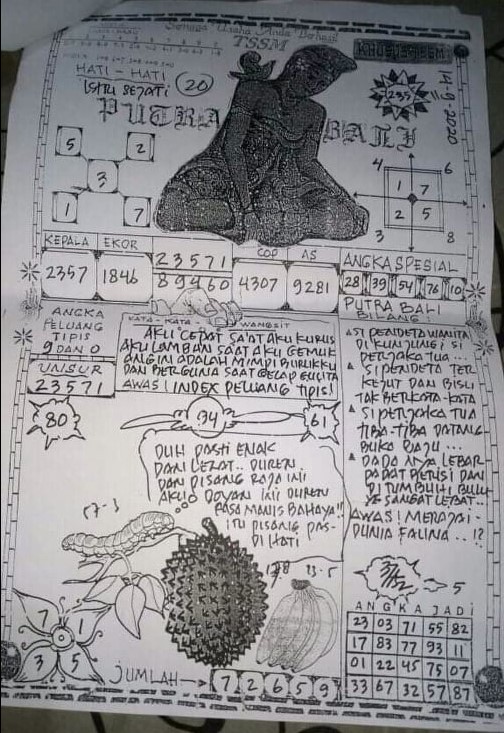 Semoga Usaha Anda Berhasil
TSSM
HATI - HATI
20
PUTRA BALI
235
14-9-2020
5 2
3
1 7
4 6
1 7
2 5
3 8
KEPALA EKOR
2357 1846
23571
89460
COP AS
4307 9281
ANGKA SPESIAL
28 39 54 76 10
PUTRA BALI
BILANG
ANGKA
PELUANG
TIPIS
9 DAN 0
UNSUR
23571
KATA - KATA WANGSIT
AKU CEPAT SAAT AKU KURUS
AKU LAMBAN SAAT AKU GEMUK
ANGIN ADALAH MIMPI BURUKKU
DAN BERGUNA SAAT GELAP GULITA
AWAS! INDEX PELUANG TIPIS!
SI PENDETA WANITA
DI KUNJUNGI SI
PERJAKA TUA...
SI PENDETA TER
KEJUT DAN BISU
TAK BERKATA-KATA
SI PERJAKA TUA
TIBA-TIBA DATANG
BUKA BAJU...
DADA NYA LEBAR
PADAT BERISI DAN
DI TUMBUHI BULU
YG SANGAT LEBAT..
AWAS! MERAPAI-
DUNIA FAUNA..!?
80
94
61
DUH PASTI ENAK
DAN LEZAT.. DUREN
DAN PISANG RAJA INI
AKU DOYAN INI DUREN
RASA MANIS BAHAYA!!
ITU PISANG PAS-
DI HATI
57-3
13-5
5
7 1
3 5
JUMLAH
7 2 6 5 9
ANGKA JADI
23 03 71 55 82
17 83 77 93 11
01 22 45 75 07
33 67 32 57 87